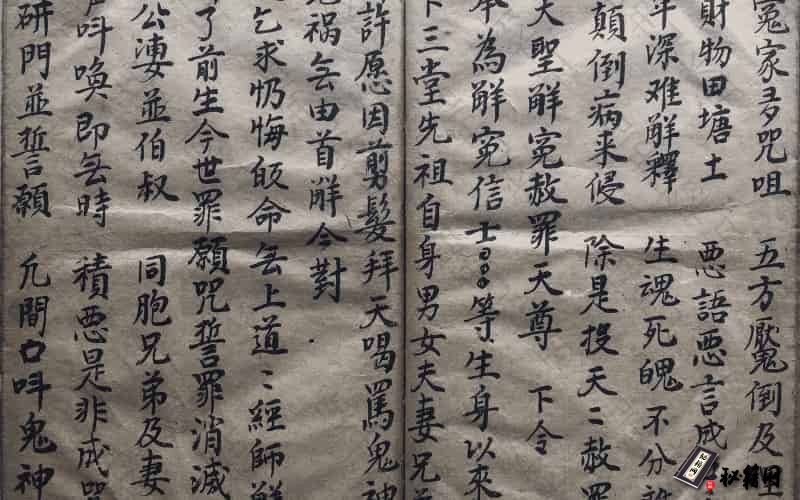 冤家多咒咀 五方厭倒及
財物田塘土 悪語悪言成
年深难觧釋 生魂死魄不分
顛倒病来侵 除是投天二赦罪
大聖觧冤赦罪天尊 下令
本為觧冤信士等生身以來
下三堂先祖自身男女夫妻兄
許愿因剪髮拜天喝罵鬼神
禍無由首觧今對
乞求忏悔皈命無上道二經師
了前生今世罪願咒誓罪消滅
公凄並伯叔 同胞兄弟及妻
呌喚即無時 積悪是非成
研門並誓願 凢間口呌鬼神
秘籍网